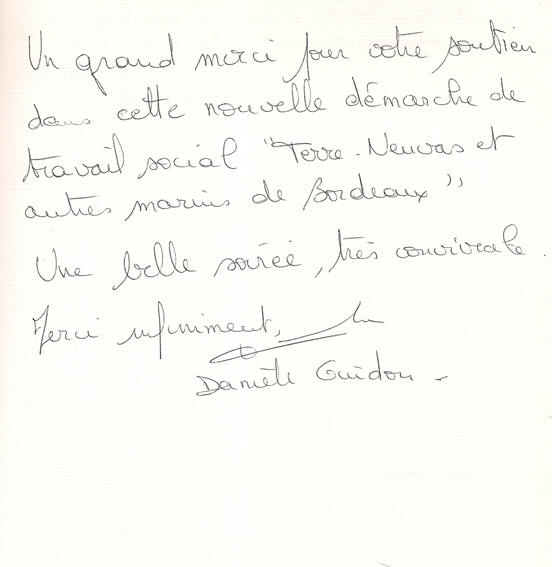 Un grand merci pour votre soutien
dans cette nouvelle démarche de
travail social "Terre-Neuvas et
autres marins de Bordeaux"
Une belle soirée, très conviviale.
Merci infiniment,
Danièle Guidou -